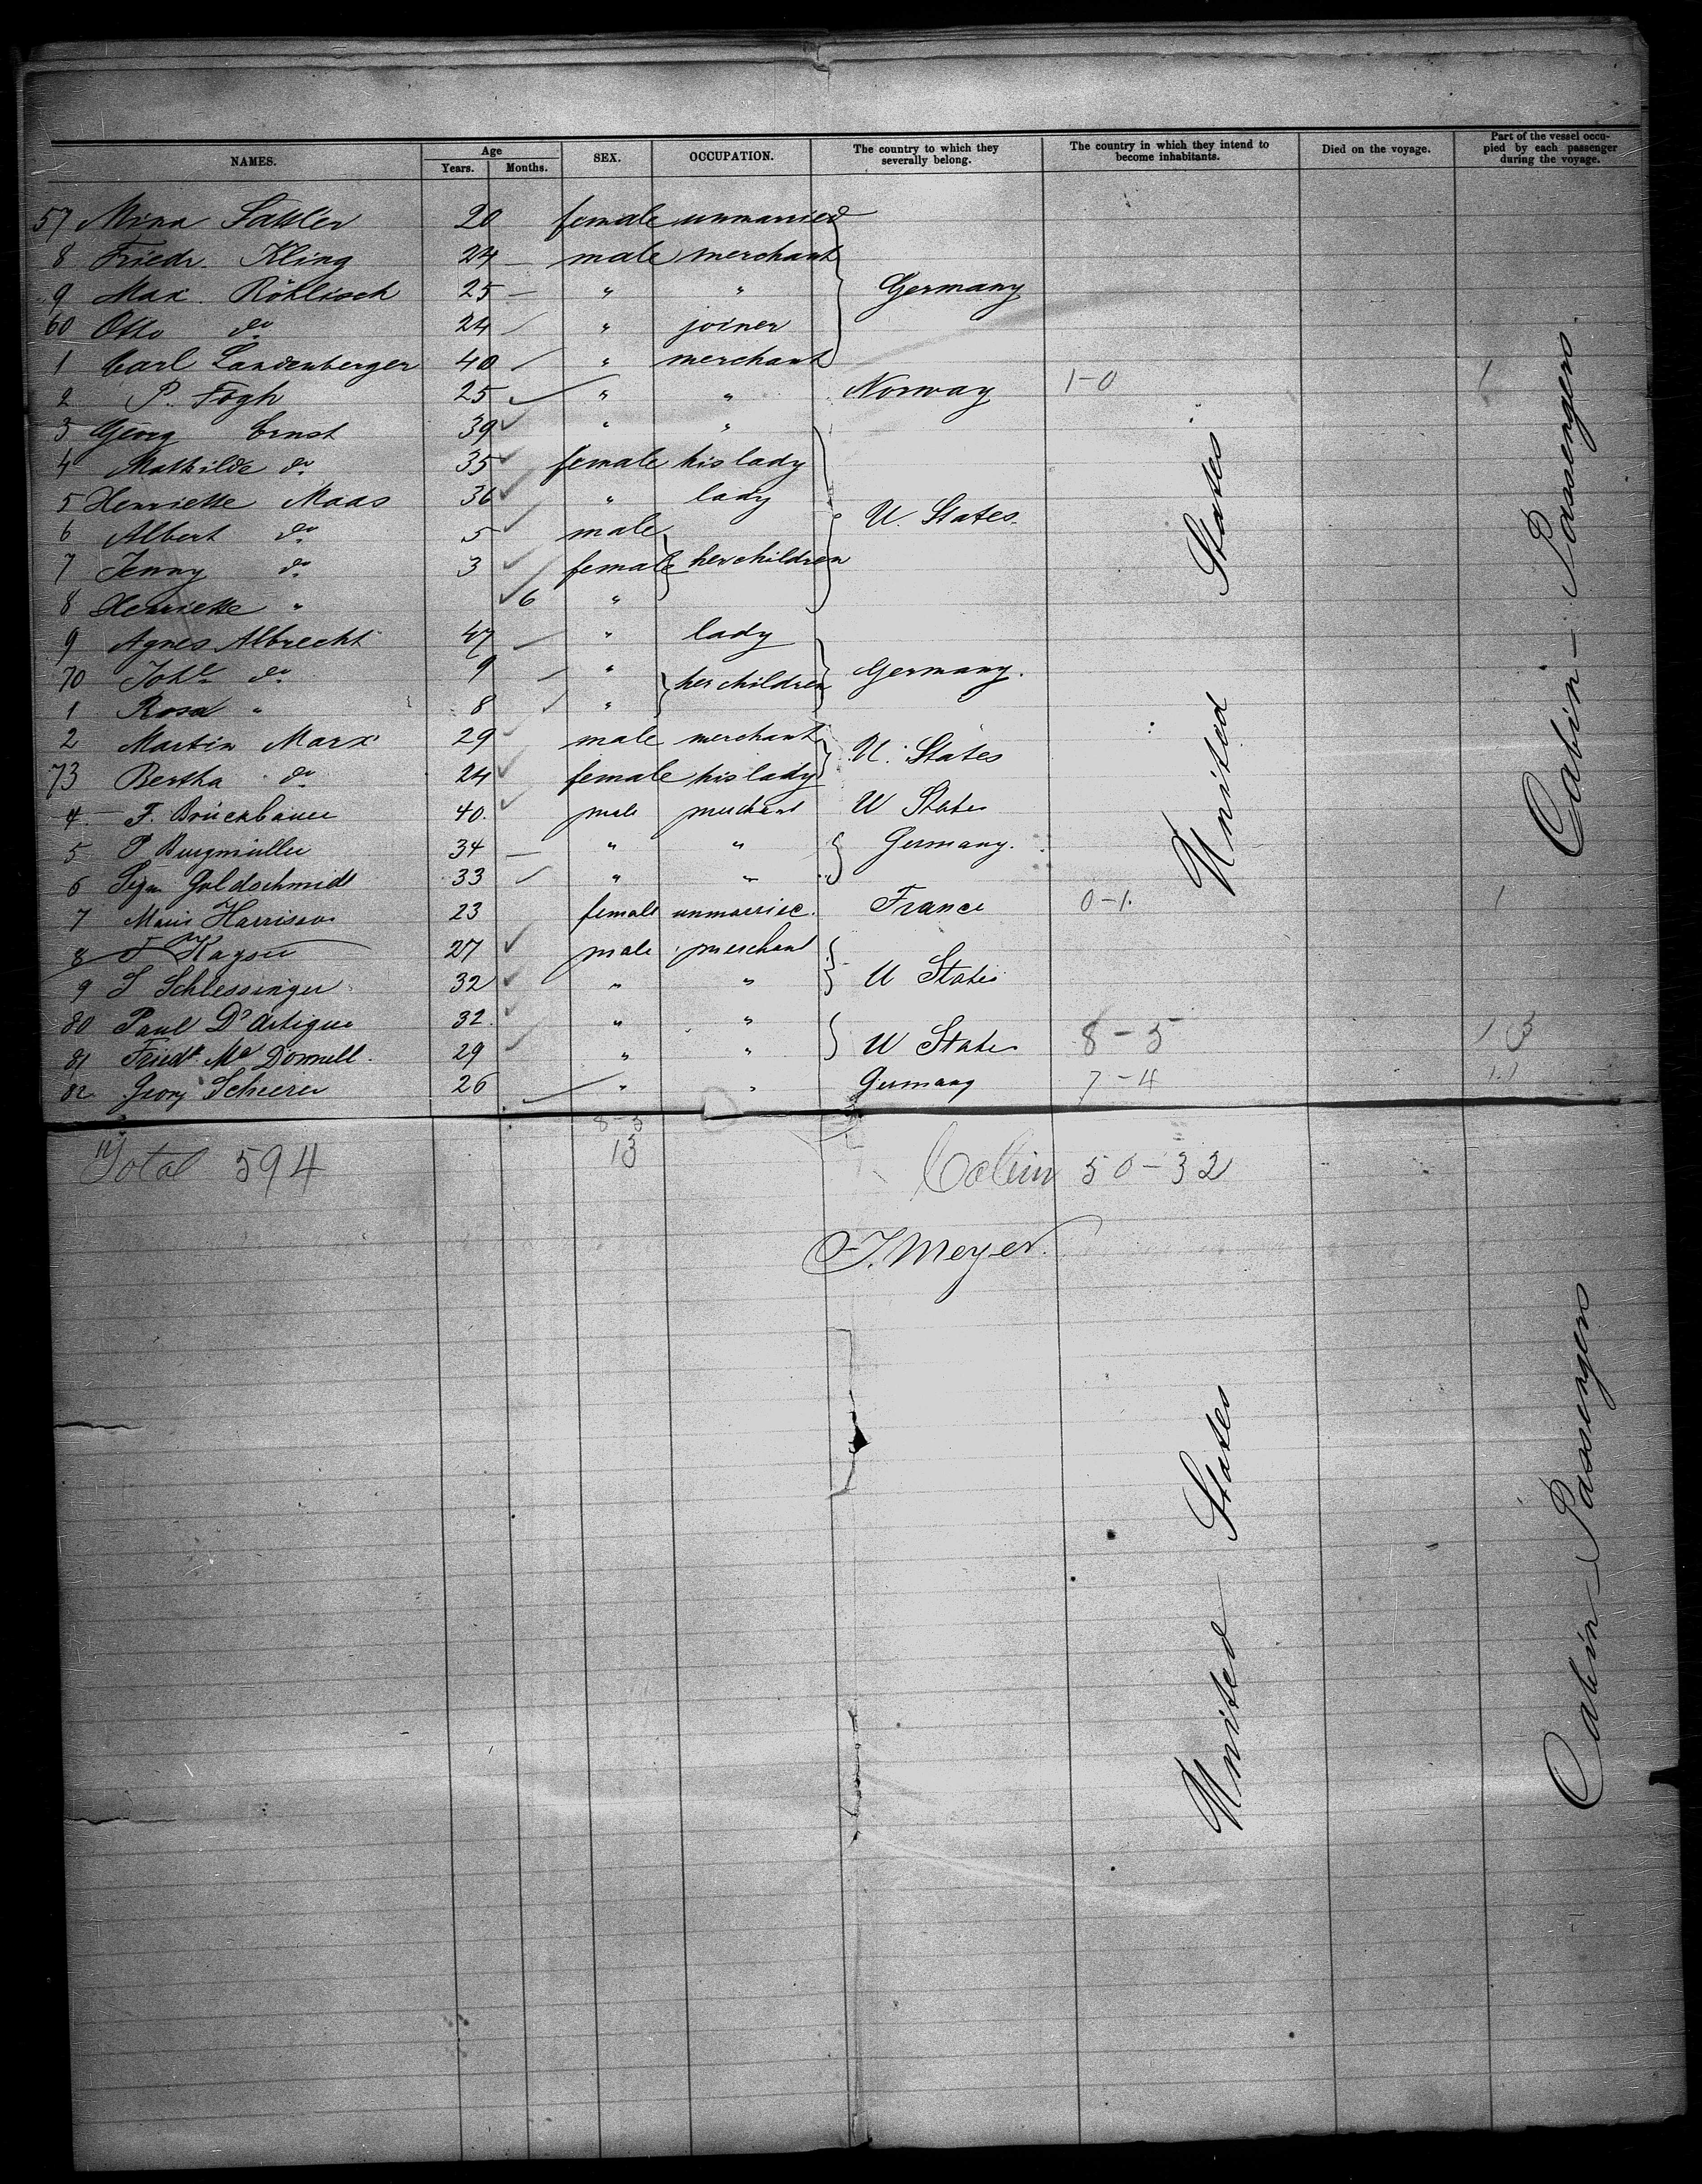 NAMES. Age Years. Months. SEX. OCCUPATION. The country to which they severally belong. The country in which they intend to become inhabitants. Died on the voyage. Part of the vessel occupied by each passenger during the voyage.
57 Mina Sattler 20 female unmarried
8 Friedr. Kling 24 — male merchant
9 Max. Röhlisch 25 — " " Germany
60 Otto do 24 " joiner
1 Carl Landenberger 40 " merchant
2 P. Fogh 25 " " Norway 1-0 1
3 Georg Ernst 39 " "
4 Mathilde do 35 female his lady
5 Henriette Maas 36 " lady
6 Albert do 5 male U. States.
7 Jenny do 3 female her children
8 Henriette " 6 "
9 Agnes Albrecht 47 " lady
70 do 9 " her children Germany.
1 Rosa " 8 "
2 Martin Marx 29 male merchant
73 Bertha do 24 female his lady U. States
4 F. Brückbauer 40. male merchant U States
5 P Burgmüller 34 — " " Germany.
6 Sigm. Goldschmidt 33 " "
7 Harrison 23 female France 0-1. 1
8 Kayser 27 male merchant
9 S Schlessinger 32 " " U States
80 Paul D'Artigue 32. " "
81 Friedr. Mc Donnell. 29 " " U States 8-5 13
82 Georg Scheerer 26 " " Germany 7-4 11
8-5
13
Total 594 Cabin 50-32
J. Meyer.
United States
Cabin - Passengers.
United States
Cabin - Passengers